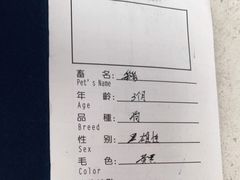 畜名：
Pet's Name
年齡： 3个月
Age
品種：
Breed
性別： 雄性
Sex
毛色：
Color